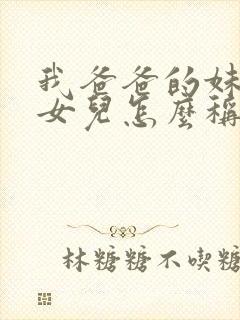 我爸爸的妹
女兒怎麼稱
林糖糖不喫糖